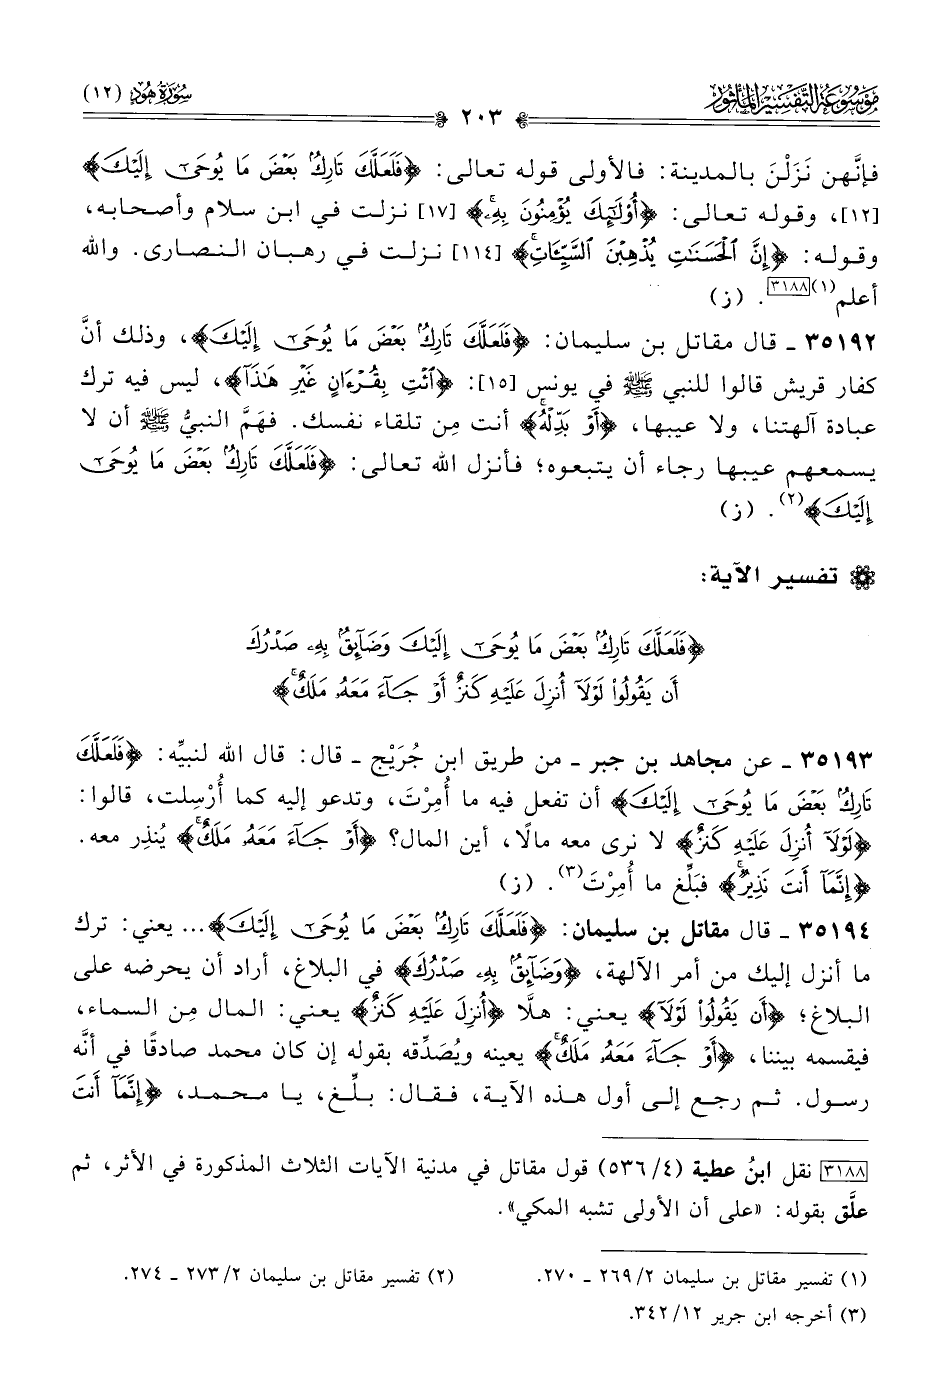 موسوعة التفسير المأثور
سورة هود (١٢)
٢٠٣
فإنَّهن نَزَلْنَ بالمدينة: فالأولى قوله تعالى: ﴿فَلَعَلَّكَ تَارِكٌۢ بَعْضَ مَا يُوحَىٰٓ إِلَيْكَ﴾
[١٢]، وقوله تعالى: ﴿أُوْلَٰٓئِكَ يُؤْمِنُونَ بِهِۦۚ﴾ [١٧] نزلت في ابن سلام وأصحابه،
وقوله: ﴿إِنَّ ٱلْحَسَنَٰتِ يُذْهِبْنَ ٱلسَّيِّـَٔاتِۚ﴾ [١١٤] نزلت في رهبان النصارى. والله
أعلم(١)[٣١٨٨]. (ز)
٣٥١٩٢ ـ قال مقاتل بن سليمان: ﴿فَلَعَلَّكَ تَارِكٌۢ بَعْضَ مَا يُوحَىٰٓ إِلَيْكَ﴾، وذلك أنَّ
كفار قريش قالوا للنبي ﷺ في يونس [١٥]: ﴿ٱئْتِ بِقُرْءَانٍ غَيْرِ هَٰذَآ﴾، ليس فيه ترك
عبادة آلهتنا، ولا عيبها، ﴿أَوْ بَدِّلْهُۚ﴾ أنت مِن تلقاء نفسك. فهَمَّ النبيُّ ﷺ أن لا
يسمعهم عيبها رجاء أن يتبعوه؛ فأنزل الله تعالى: ﴿فَلَعَلَّكَ تَارِكٌۢ بَعْضَ مَا يُوحَىٰٓ
إِلَيْكَ﴾(٢). (ز)
تفسير الآية:
﴿فَلَعَلَّكَ تَارِكٌۢ بَعْضَ مَا يُوحَىٰٓ إِلَيْكَ وَضَآئِقٌۢ بِهِۦ صَدْرُكَ
أَن يَقُولُوا۟ لَوْلَآ أُنزِلَ عَلَيْهِ كَنزٌ أَوْ جَآءَ مَعَهُۥ مَلَكٌۚ﴾
٣٥١٩٣ ـ عن مجاهد بن جبر ـ من طريق ابن جُرَيْج ـ قال: قال الله لنبيِّه: ﴿فَلَعَلَّكَ
تَارِكٌۢ بَعْضَ مَا يُوحَىٰٓ إِلَيْكَ﴾ أن تفعل فيه ما أُمِرْتَ، وتدعو إليه كما أُرْسِلت، قالوا:
﴿لَوْلَآ أُنزِلَ عَلَيْهِ كَنزٌ﴾ لا نرى معه مالًا، أين المال؟ ﴿أَوْ جَآءَ مَعَهُۥ مَلَكٌۚ﴾ يُنذِر معه.
﴿إِنَّمَآ أَنتَ نَذِيرٌۚ﴾ فبَلِّغ ما أُمِرْتَ(٣). (ز)
٣٥١٩٤ ـ قال مقاتل بن سليمان: ﴿فَلَعَلَّكَ تَارِكٌۢ بَعْضَ مَا يُوحَىٰٓ إِلَيْكَ﴾... يعني: ترك
ما أنزل إليك من أمر الآلهة، ﴿وَضَآئِقٌۢ بِهِۦ صَدْرُكَ﴾ في البلاغ، أراد أن يحرضه على
البلاغ؛ ﴿أَن يَقُولُوا۟ لَوْلَآ﴾ يعني: هلَّا ﴿أُنزِلَ عَلَيْهِ كَنزٌ﴾ يعني: المال مِن السماء،
فيقسمه بيننا، ﴿أَوْ جَآءَ مَعَهُۥ مَلَكٌۚ﴾ يعينه ويُصَدِّقه بقوله إن كان محمد صادقًا في أنَّه
رسول. ثم رجع إلى أول هذه الآية، فقال: بلِّغ، يا محمد، ﴿إِنَّمَآ أَنتَ
[٣١٨٨] نقل ابنُ عطية (٤/ ٥٣٦) قول مقاتل في مدنية الآيات الثلاث المذكورة في الأثر، ثم
علَّق بقوله: «على أن الأولى تشبه المكي».
(١) تفسير مقاتل بن سليمان ٢/ ٢٦٩ ـ ٢٧٠.
(٢) تفسير مقاتل بن سليمان ٢/ ٢٧٣ ـ ٢٧٤.
(٣) أخرجه ابن جرير ١٢/ ٣٤٢.